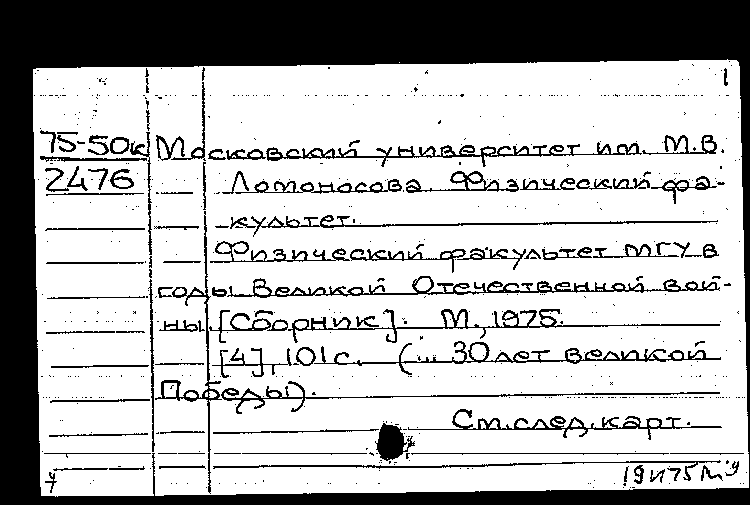 1
75-50к Московский университет им. М.В.
2476 Ломоносова. Физический фа-
культет.
Физический факультет МГУ в
годы Великой Отечественной вой-
ны. [Сборник]. М., 1975.
[4], 101 с. (... 30 лет великой
Победы).
См. след. карт.